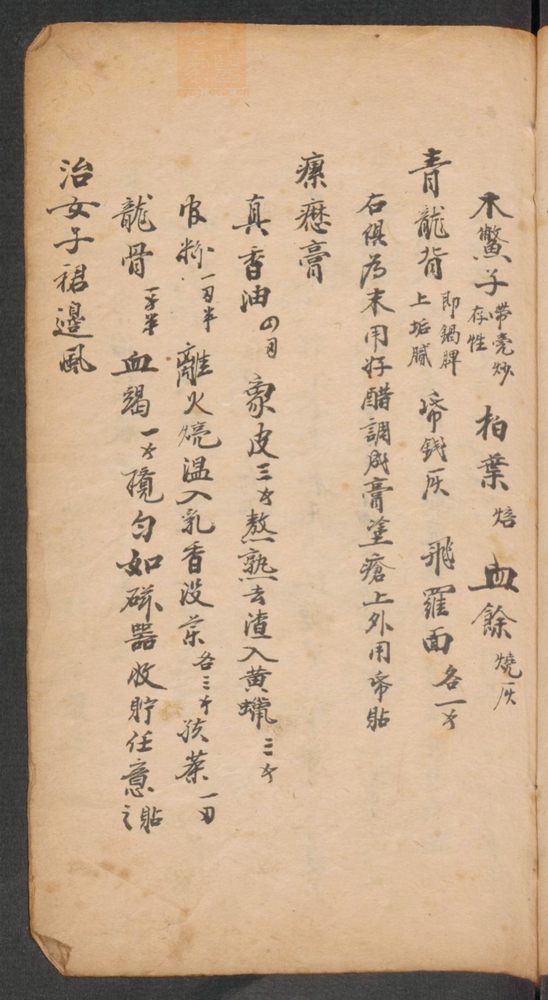 木鱉子带壳炒存性 柏葉焙 血餘燒灰
青龍背即鍋臍上垢膩 帋錢灰 飛羅面各一錢
右俱為末用好醋調成膏塗瘡上外用帋貼
瘰癧膏
真香油四兩 象皮三錢熬熟去渣入黄蠟三錢
官粉一兩半 離火凴温入乳香没药各三錢 孩茶一兩
龍骨一錢半 血竭一錢攪匀如磁器收貯任意貼之
治女子裙邊風